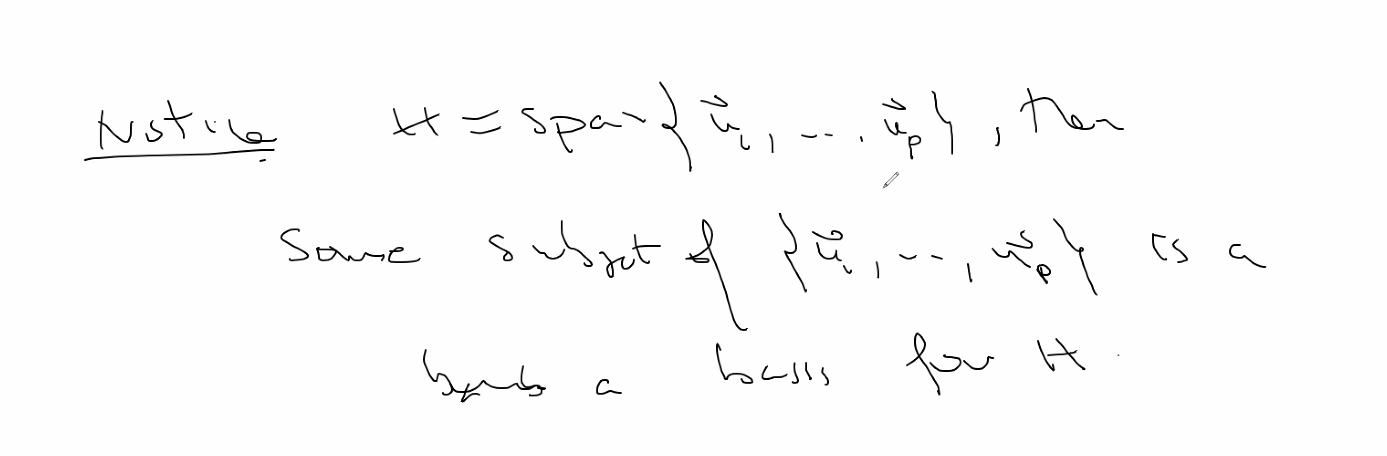 Notice H = span{u⃗₁, ..., u⃗ₚ}, then
Some subset of {u⃗₁, ..., u⃗ₚ} is a
a basis for H.